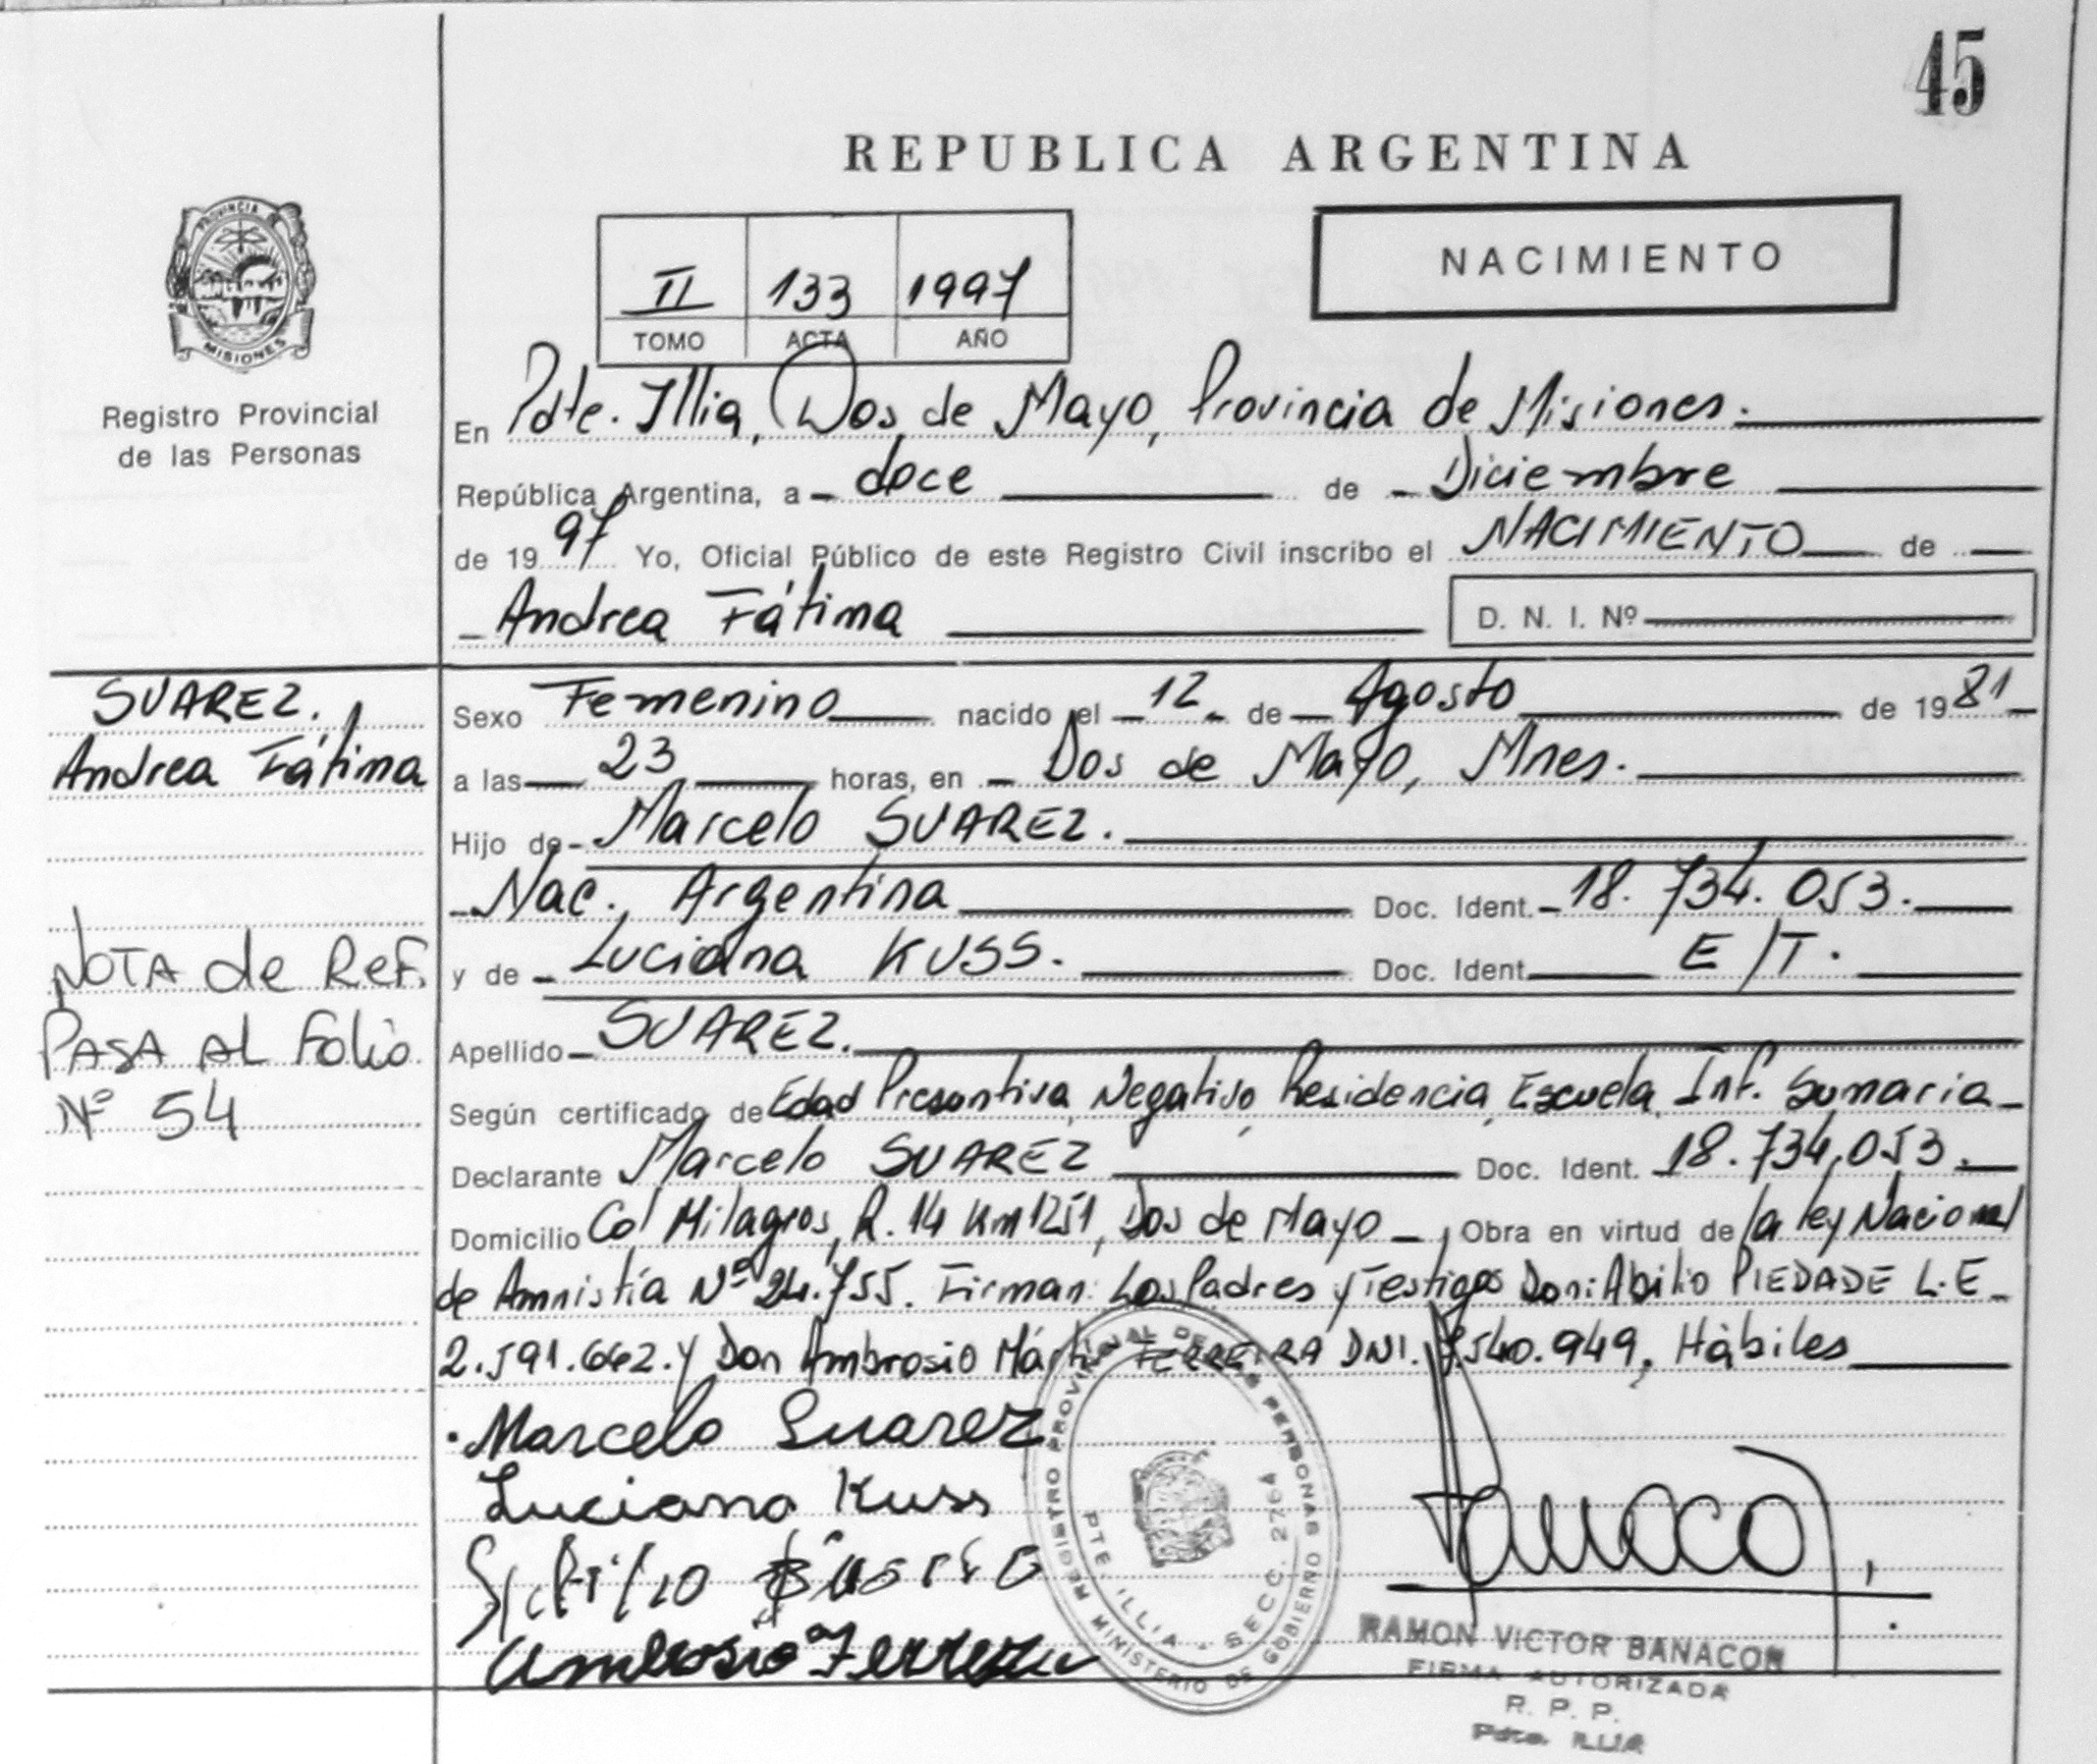 45
REPUBLICA ARGENTINA
PROVINCIA DE
MISIONES
Registro Provincial
de las Personas
II 133 1997
TOMO ACTA AÑO
NACIMIENTO
En Pdte. Illia, Dos de Mayo, Provincia de Misiones.
República Argentina, a doce de Diciembre
de 1997 Yo, Oficial Público de este Registro Civil inscribo el NACIMIENTO de
Andrea Fátima
D. N. I. Nº
SUAREZ.
Andrea Fátima
NOTA de ReF.
PASA AL Folio
Nº 54
Sexo Femenino nacido el 12 de Agosto de 1981
a las 23 horas, en Dos de Mayo, Mnes.
Hijo de Marcelo SUAREZ.
Nac., Argentina Doc. Ident. 18.734.053.
y de Luciana KUSS. Doc. Ident. E/T.
Apellido SUAREZ.
Según certificado de Edad Presuntiva, Negativo, Residencia, Escuela, Inf. Sumaria
Declarante Marcelo SUAREZ Doc. Ident. 18.734,053.
Domicilio Col Milagros, R. 14 Km 1251, Dos de Mayo, Obra en virtud de la ley Nacional
de Amnistía Nº 24.755. Firman: Los Padres y Testigos Don: Abilio PIEDADE L.E
2.591.662. y Don Ambrosio FERREIRA DNI. 7.540.949, Hábiles
Marcelo Suarez
Luciana Kuss
Ambrosio Ferreira
REGISTRO PROVINCIAL DE LAS PERSONAS
MINISTERIO DE GOBIERNO
PTE ILLIA - SECC. 2764
RAMON VICTOR BANACOR
FIRMA AUTORIZADA
R. P. P.
Pdte. ILLIA